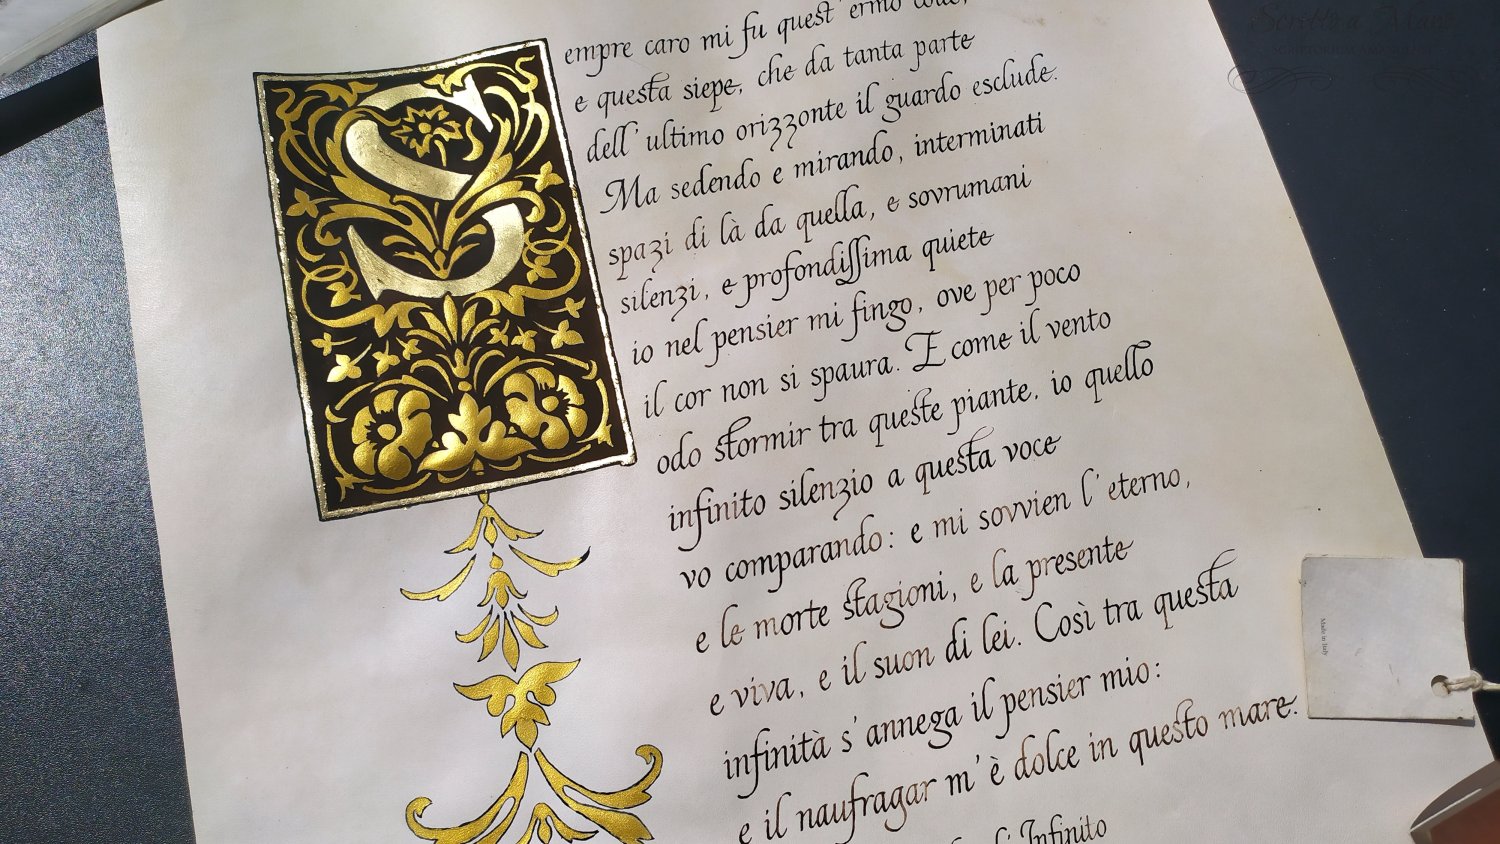 S
empre caro mi fu quest' ermo colle,
e questa siepe, che da tanta parte
dell' ultimo orizzonte il guardo esclude.
Ma sedendo e mirando, interminati
spazi di là da quella, e sovrumani
silenzi, e profondissima quiete
io nel pensier mi fingo, ove per poco
il cor non si spaura. E come il vento
odo stormir tra queste piante, io quello
infinito silenzio a questa voce
vo comparando: e mi sovvien l' eterno,
e le morte stagioni, e la presente
e viva, e il suon di lei. Così tra questa
infinità s' annega il pensier mio:
e il naufragar m' è dolce in questo mare.
l' Infinito
Scritto a Mano
Made in Italy